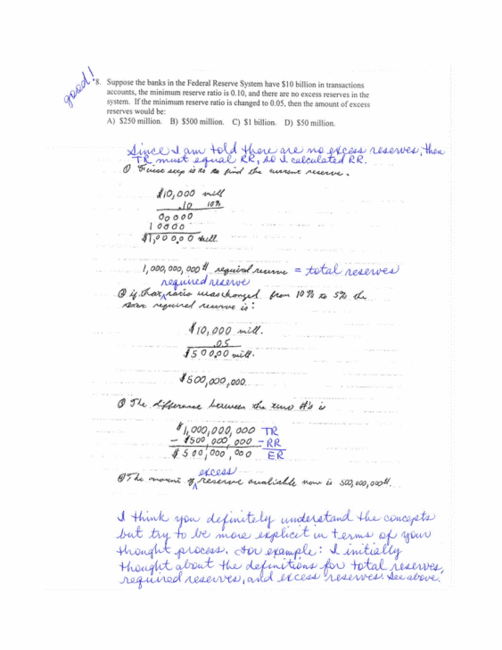 good!
*8. Suppose the banks in the Federal Reserve System have $10 billion in transactions
accounts, the minimum reserve ratio is 0.10, and there are no excess reserves in the
system. If the minimum reserve ratio is changed to 0.05, then the amount of excess
reserves would be:
A) $250 million. B) $500 million. C) $1 billion. D) $50 million.
Since I am told there are no excess reserves, then
TR must equal RR, so I calculated RR.
① First step is to find the current reserve.
$10,000 mill
.10 10%
00000
10000
$1,000.00 mill.
1,000,000,000 required reserve = total reserves
required reserve
② if that ^ ratio was changed from 10% to 5% the
required reserve is:
$10,000 mill.
.05
$500.00 mill.
$500,000,000
③ The difference between the two #'s is
$1,000,000,000 TR
- $500,000,000 - RR
$500,000,000 ER
excess
④ The amount of ^ reserve available now is 500,000,000
I think you definitely understand the concepts
but try to be more explicit in terms of your
thought process. For example: I initially
thought about the definitions for total reserves,
required reserves, and excess reserves. See above.